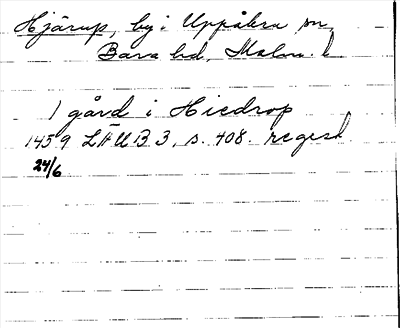 Hjärup, by i Uppåkra sn,
Bara hd, Malm. l
1 gård i Hiedrop
1459 LÄUB 3, s. 408. regest
24/6